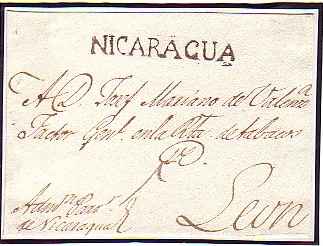 NICARAGUA
A D. Josf Mariano de Valenza
Factor Genl. en la Rta. de tabacos
Leon
de Nicaragua